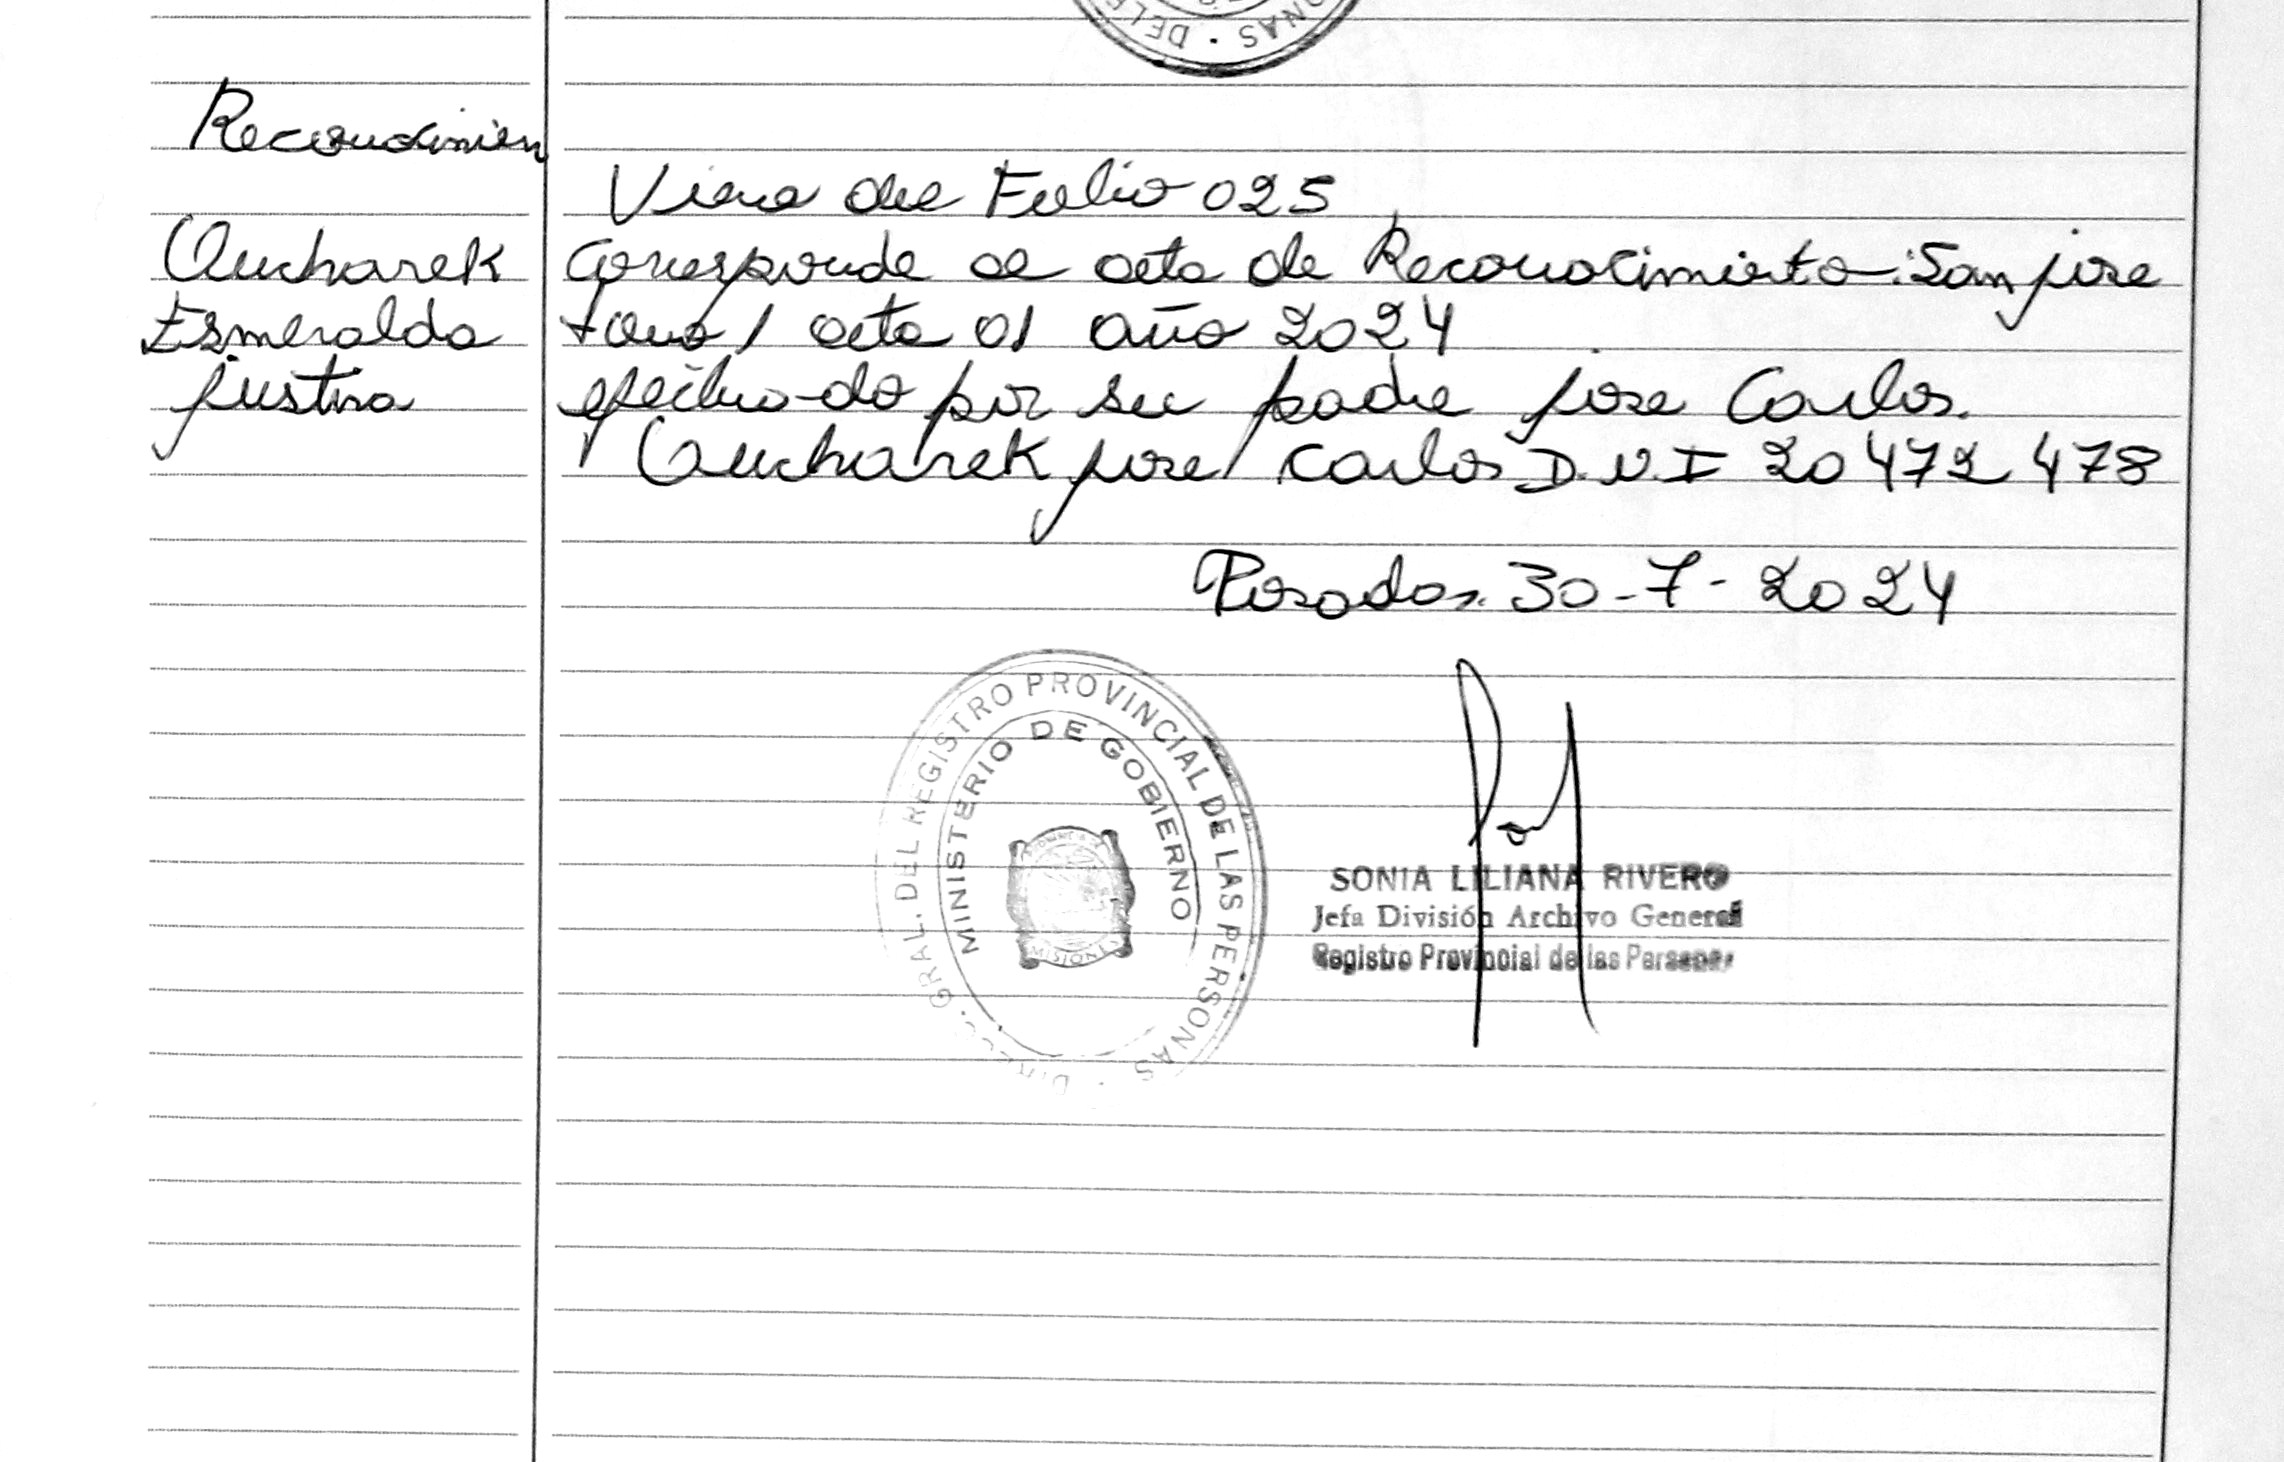 ONAS · DELE
Reconocimien
Viene del Folio 025
Aucharek
Esmeralda
justina
Corresponde al acta de Reconocimiento: San jose
tomo 1 acta 01 año 2024
efectuado por su padre jose Carlos.
Aucharek jose Carlos D.N.I 20 472 478
Posadas. 30-7-2024
GRAL. DEL REGISTRO PROVINCIAL DE LAS PERSONAS
MINISTERIO DE GOBIERNO
MISIONES
SONIA LILIANA RIVERO
Jefa División Archivo General
Registro Provincial de las Personas